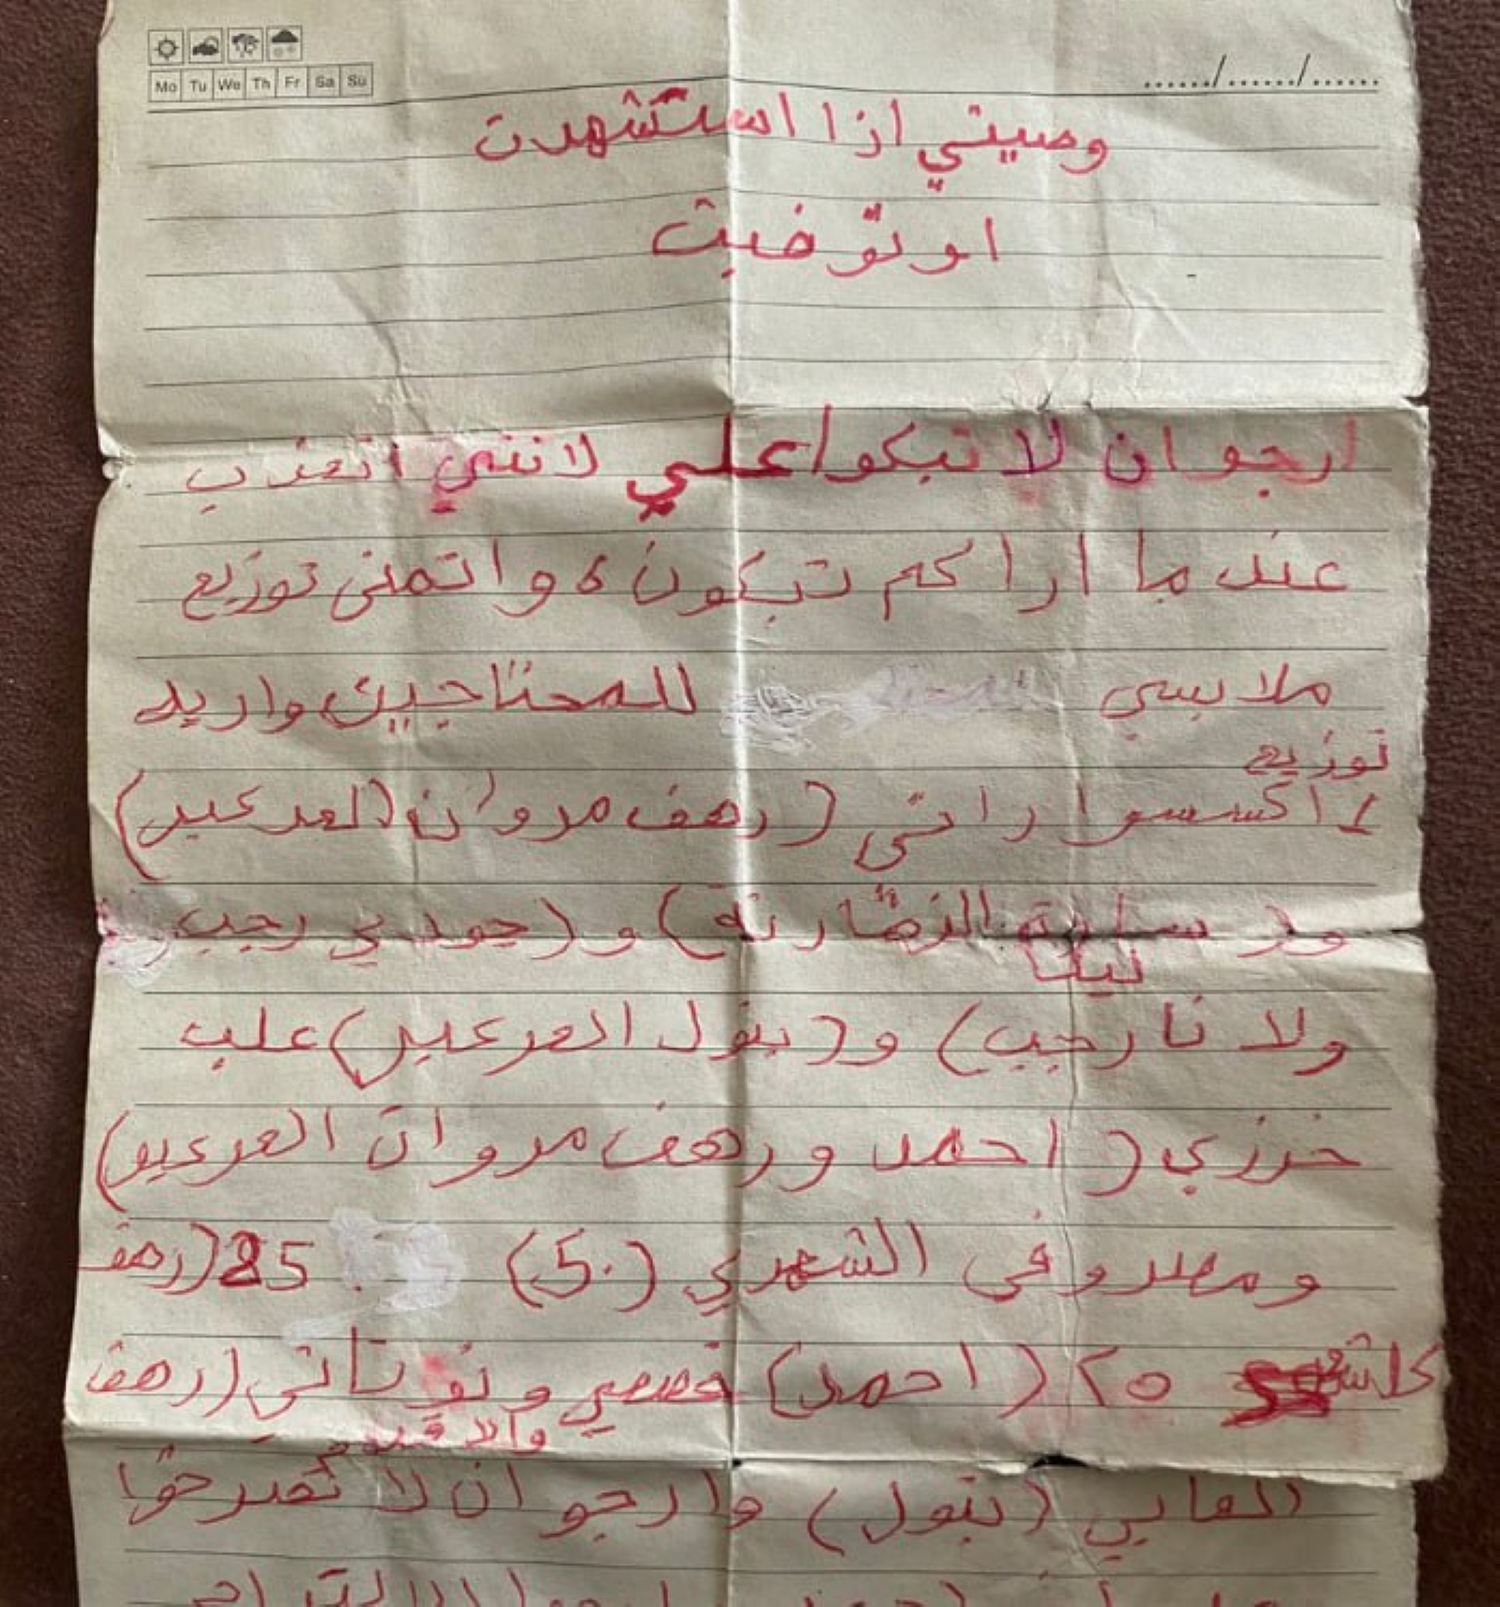 Mo Tu We Th Fr Sa Su
....../....../......
وصيتي اذا استشهدت
او توفيت
ارجو ان لا تبكوا علي لانني اتعذب
عندما اراكم تبكون، واتمنى توزيع
ملابسي للمحتاجين واريد
توزيع
اكسسواراتي (رهف مروان العرعير)
و(سارة النضارنة) و(جودي رجب
لينا
ولانا رجب) و(بتول العرعير) علب
خرزي (احمد ورهف مروان العرعير)
ومصروفي الشهري (50) 25 (رهف
كلشهر ٢٥ (احمد) قصصي ودفاتري (رهف
العابي (بتول) وارجو ان لا تصرخوا